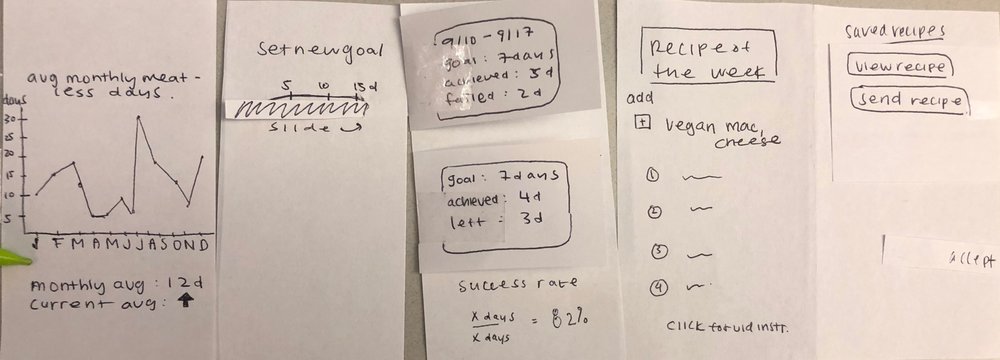 avg monthly meat-
less days.
days
30
25
20
15
10
5
J F M A M J J A S O N D
monthly avg : 12d
current avg : ↑
set new goal
5 10 15 d
slide
9/10 - 9/17
goal : 7 days
achieved : 5 d
failed : 2 d
goal : 7 days
achieved : 4 d
left : 3 d
success rate
x days
x days
= 82%
Recipe of
the week
add
+ vegan mac,
cheese
1
2
3
4
click for vid instr.
saved recipes
view recipe
send recipe
accept